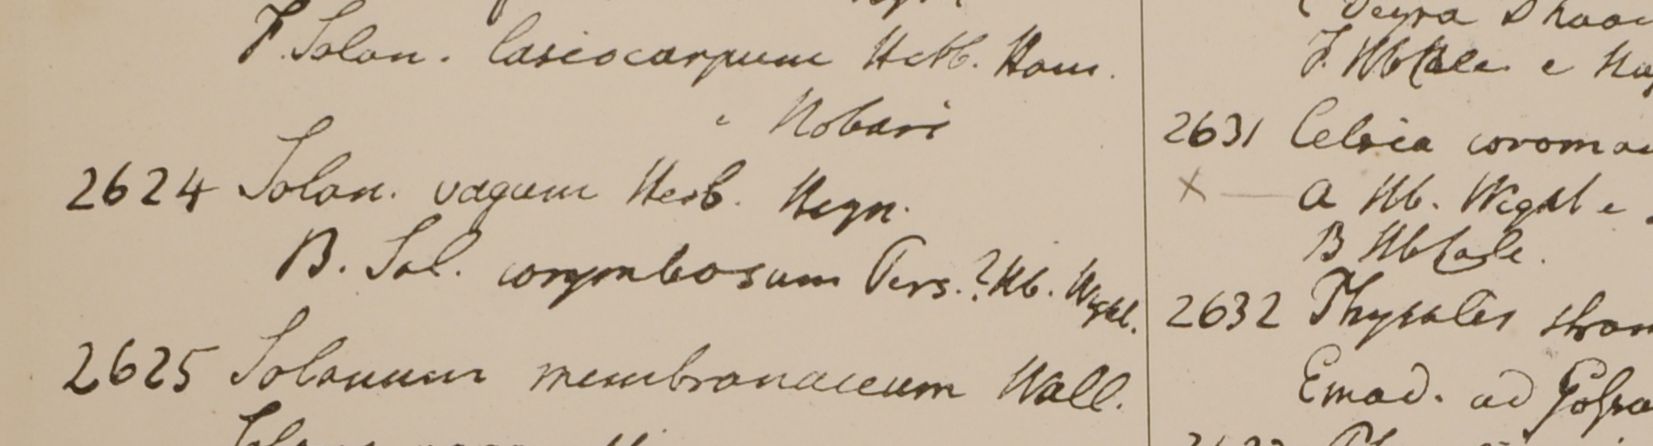 F. Solan. lasiocarpum Herb. Ham.
Nobari
2624 Solan. vagum Herb. Heyn.
B. Sol. corymbosum Pers.? Hb. Wight.
2625 Solanum membranaceum Wall.
Deyra Dhoo
F. Hb Calc. e
2631 Celsia coroma
X — a Hb. Wight e
B Hb Calc.
2632 Physalis stram
Emad. ad